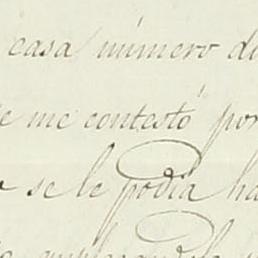 casa número di
e me contestó por
se le podia ha